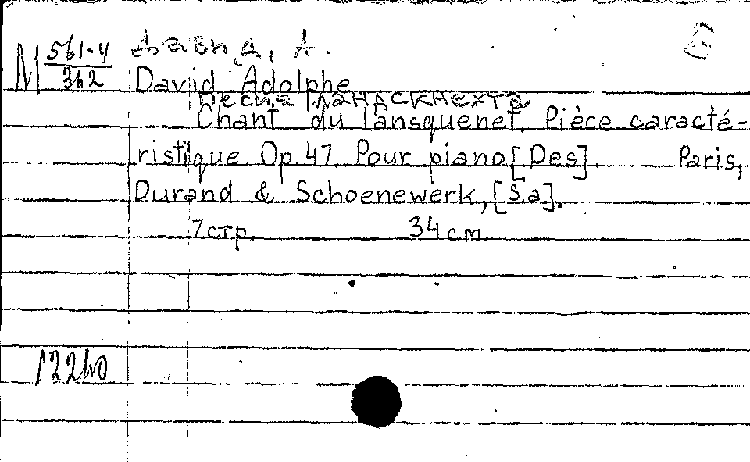 М 561-4/362
Давид, А.
David Adolphe
Песня ландскнехта
Chant du lansquenet. Pièce caracté-
ristique Op. 47. Pour piano [Des]. Paris,
Durand & Schoenewerk, [S.a].
7 стр. 34 см